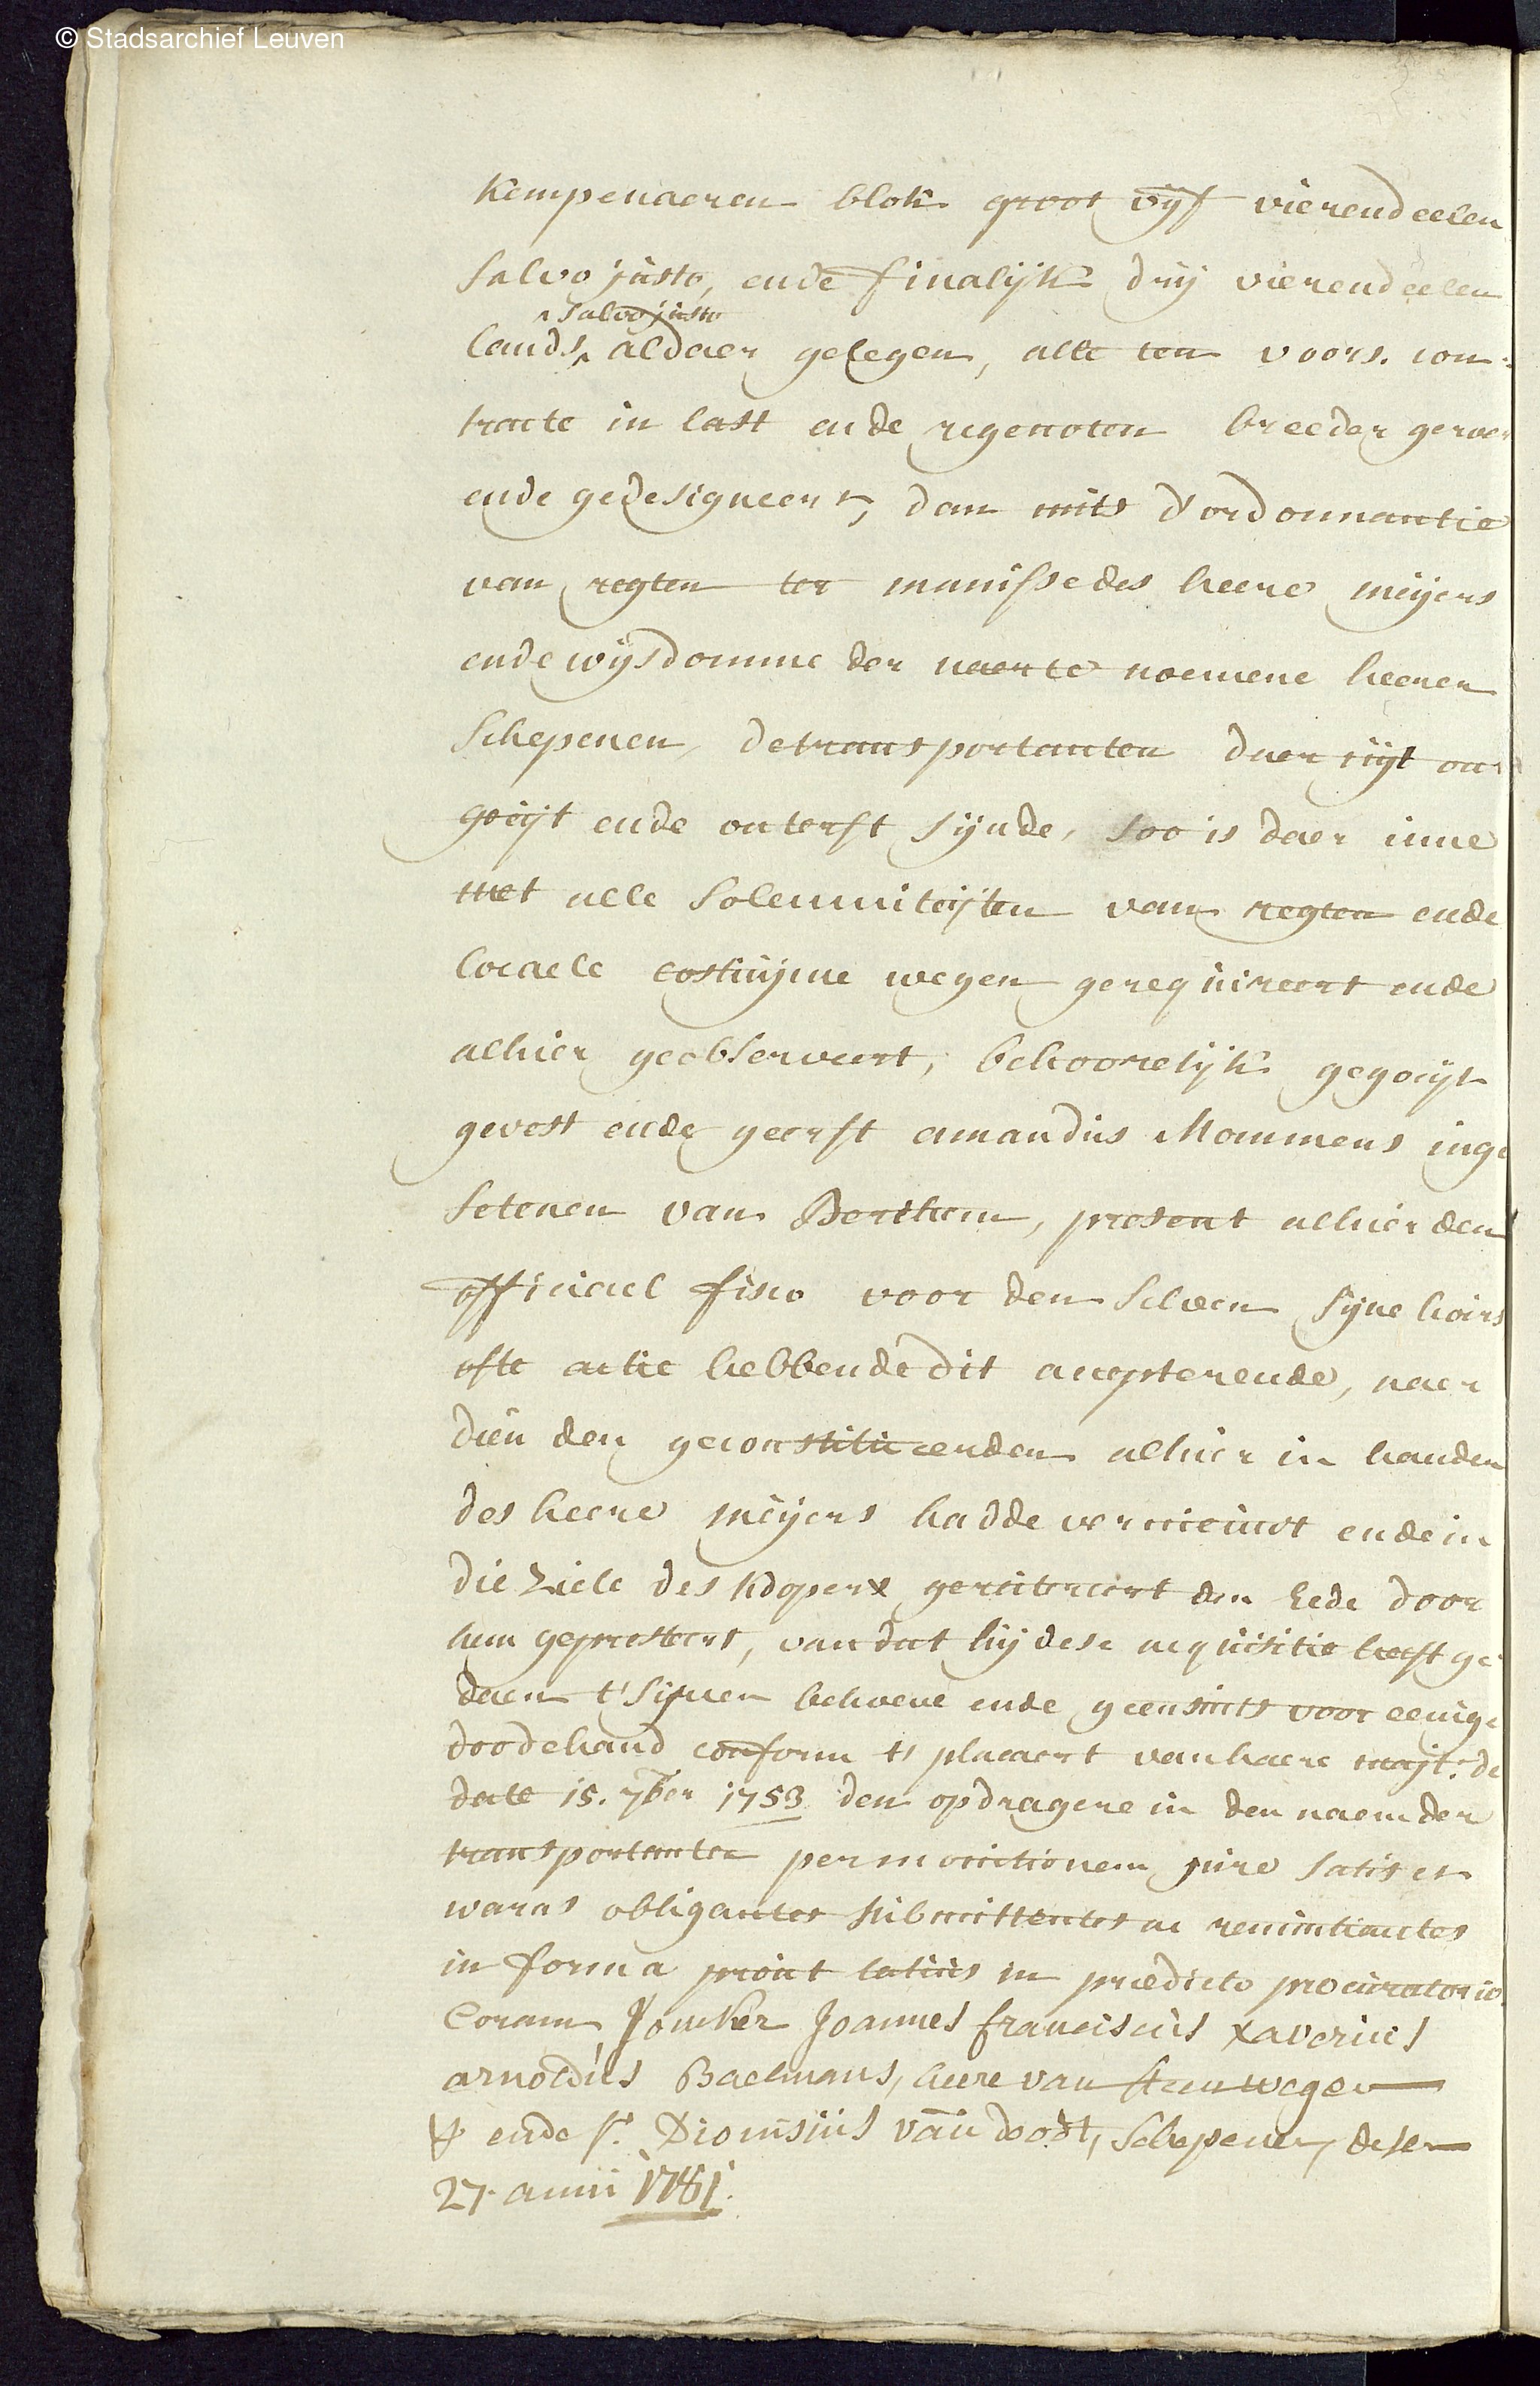 © Stadsarchief Leuven
Kempenaeren blok groot vijf vierendeelen
salvo justo, ende finalijk drij vierendeelen
^ salvo justo
lands ^ aldaer gelegen, alle ten voors. con:
tracte in last ende regenoten breeder geroer
ende gedesigneert, dan mits d'ordonnantie
van regten ter manisse des heere meijers
ende wijsdomme der naer te noemene heeren
schepenen, de transportanten daer uijt ont
goeijt ende onterft sijnde, soo is daer inne
met alle solemniteijten van regten ende
locaele costuijme wegen gerequireert ende
alhier geobserveert, behoorelijk gegoeijt
gevest ende geerft amandus Mommens inge
setenen van Berthem, present alhier den
officiael fisco voor den selven sijne hoirs
ofte actie hebbende dit accepterende, naer
dien den geconstitueerden alhier in handen
des heere meijers hadde vernieuwt ende in
die ziele des koopers gereitereert den eede door
hem gepresteert, van dat hij dese acquisitie heeft ge
daen t'sijnen behoeve ende geensints voor eenige
doodehand conform t' placaert van haere majt. de
date 15. 7ber 1753 den opdragere in den naem der
transportanten per monitionem jure satis et
waras obligantes submittentes ac renuntiantes
in forma prout latius in prædicto procuratorio.
Coram Joncker Joannes franciscus xaverius
arnoldus Baelmans, heere van Steenwegen
& ende sr. Dionisius van doost, schepenen, desen
27. annii 1781.